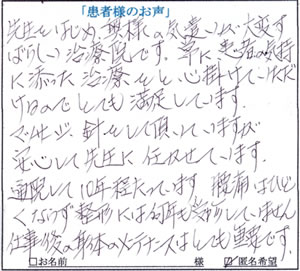 「患者様のお声」
先生をはじめ、奥様の気遣いが大変す
ばらしい治療院です。常に患者の気持
に添った治療をと心掛けていただ
けるのでとても満足しています。
マッサージ、針をして頂いていますが
安心して先生に任せています。
通院して10年程たっています。腰痛はひど
くならず整形には何年も受診していません
仕事後の身体のメンテナンスはとても重要です。
□お名前 様 ☑匿名希望